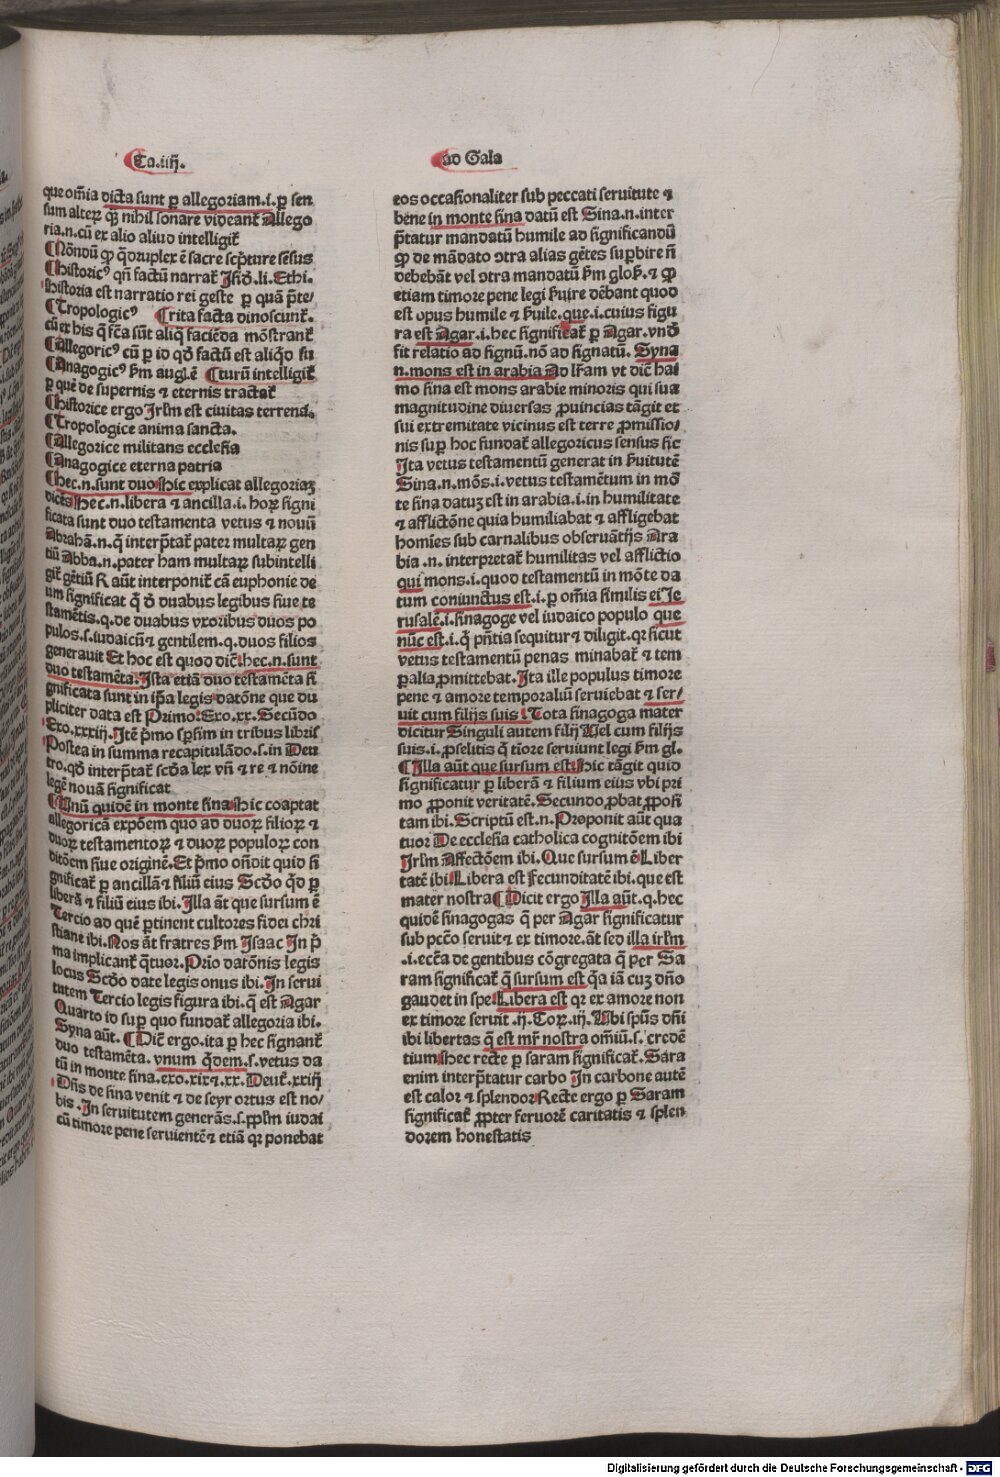 Ca.iiij.
ad Gala
que om̄ia dicta sunt ꝑ allegoriam.i.ꝑ sen
sum alterꝝ qꝫ nihil sonare videant̉ Allego
ria.n.cū ex alio aliud intelligit̉
Nōndū ꝙ q̄druplex ē sacre scp̄ture sēsus
Historicꝰ qn̄ factū narrat̉ Isid̄.li.Ethi.
Historia est narratio rei geste ꝑ quā p̄te/
Tropologicꝰ rita facta dinoscunt̉.
cū ex his q̄ fc̄a sūt aliq̄ faciēda mōstrant̉
Allegoricꝰ cū ꝑ id qd̄ factū est aliqd̄ fu
Anagogicꝰ ẜm augl.ē turū intelligit̉
ꝑ quē de supernis ⁊ eternis tractat̉
Historice ergo Jrl̄m est ciuitas terrena.
Tropologice anima sancta.
Allegorice militans ecclesia
Anagogice eterna patria
hec.n.sunt duo Hic explicat allegoriaꝫ
dicēs Hec.n.libera ⁊ ancilla.i.horꝝ signi
ficata sunt duo testamenta vetus ⁊ nouū
Abrahā.n.q̄ interp̄tat̉ pater multarꝝ gen
tiū Abba.n.pater ham multarꝝ subintelli
git̉ gētiū R aūt interponit̉ cā euphonie de
um significat q̄ d̄ duabus legibus siue te
stamētis.q.de duabus vxoribus duos po
pulos.s.iudaicū ⁊ gentilem.q.duos filios
generauit Et hoc est quod dic̄.hec.n.sunt
duo testamēta.Ista etiā duo testamēta si
gnificata sunt in ip̄a legis datōne que du
pliciter data est Primo.Exo.xx.Secūdo
Exo.xxxiij.Itē p̄mo sꝑsim in tribus libris
Postea in summa recapitulādo.s.in Deu
tro.qd̄ interp̄tat̉ scd̄a lex vn̄ ⁊ re ⁊ nōine
legē nouā significat
Unū quidē in monte sina Hic coaptat
allegoricā expōem quo ad duorꝝ filiorꝝ ⁊
duorꝝ testamentorꝝ ⁊ duorꝝ populorꝝ con
ditōem siue originē.Et p̄mo on̄dit quid si
gnificat̉ ꝑ ancillā ⁊ filiū eius Scd̄o qd̄ ꝑ
liberā ⁊ filiū eius ibi.Illa āt que sursum ē
Tercio ad quē ꝑtinent cultores fidei chri
stiane ibi.Nos āt fratres ẜm Isaac In p̄
ma implicant̉ q̄tuor.Prīo datōnis legis
locus Scd̄o date legis onus ibi.In serui
tutem Tercio legis figura ibi.q̄ est Agar
Quarto id suꝑ quo fundat̉ allegoria ibi.
Syna aūt. Dic̄ ergo.ita ꝑ hec signant̉
duo testamēta.vnum q̄dem.s.vetus da
tū in monte sina.exo.xix ⁊.xx.Deut̉.xxiij
Dn̄s de sina venit ⁊ de seyr ortus est no/
bis.In seruitutem generās.s.ꝓpl̄m iudai
cū timore pene seruientē ⁊ etiā qꝛ ponebat
eos occasionaliter sub peccati seruitute ⁊
bene in monte sina datū est Sina.n.inter
p̄tatur mandatū humile ad significandū
ꝙ de mādato ↄtra alias gētes suꝑbire n̄
debebāt vel ↄtra mandatū ẜm glos̄.⁊ ꝙ
etiam timore pene legi ẜuire dēbant quod
est opus humile ⁊ ẜuile.que.i.cuius figu
ra est Agar.i.hec significat̉ ꝑ Agar.vnd̄
fit relatio ad signū.nō ad signatū. Syna
n.mons est in arabia Ad lr̄am vt dic̄ hai
mo sina est mons arabie minoris qui sua
magnitudine diuersas ꝓuincias tāgit et
sui extremitate vicinus est terre ꝓmissio/
nis suꝑ hoc fundat̉ allegoricus sensus sic
Ita vetus testamentū generat in ẜuitutē
Sina.n.mōs.i.vetus testamētum in mō
te sina datuꝫ est in arabia.i.in humilitate
⁊ afflictōne quia humiliabat ⁊ affligebat
homīes sub carnalibus obseruātijs Ara
bia .n. interpretat̉ humilitas vel afflictio
qui mons.i.quod testamentū in mōte da
tum coniunctus est.i.ꝑ om̄ia similis ei Ie
rusalē.i.sinagoge vel iudaico populo que
nūc est.i.q̄ pn̄tia sequitur ⁊ diligit.qꝛ sicut
vetus testamentū penas minabat̉ ⁊ tem
ꝑalia ꝓmittebat.Ita ille populus timore
pene ⁊ amore temporaliū seruiebat ⁊ ser/
uit cum filijs suis .Tota sinagoga mater
dicitur Singuli autem filij Uel cum filijs
suis.i.ꝓselitis q̄ tīore seruiunt legi ẜm gl.
Illa aūt que sursum est.Hic tāgit quid
significatur ꝑ liberā ⁊ filium eius vbi pri
mo ꝓponit veritatē.Secundo ꝓbat ꝓposi
tam ibi.Scriptū est.n.Proponit aūt qua
tuor De ecclesia catholica cognitōem ibi
Irl̄m Affectōem ibi.Que sursum ē Liber
tatē ibi Libera est Fecunditatē ibi.que est
mater nostra Dicit ergo Illa aūt.q.hec
quidē sinagogas q̄ per Agar significatur
sub pcc̄o seruit ⁊ ex timore.āt sed illa irl̄m
.i.ecc̄a de gentibus cōgregata q̄ per Sa
ram significat̉ q̄ sursum est q̄a iā cuꝫ dn̄o
gaudet in spe.Libera est qꝛ ex amore non
ex timore seruit .ij.Corꝝ.iij.Ubi spūs dn̄i
ibi libertas q̄ est mr̄ nostra om̄iū.s.credē
tium Hec recte ꝑ saram significat̉.Sara
enim interp̄tatur carbo In carbone autē
est calor ⁊ splendor Recte ergo ꝑ Saram
significat̉ ꝓpter feruorē caritatis ⁊ splen
dorem honestatis
Digitalisierung gefördert durch die Deutsche Forschungsgemeinschaft - DFG